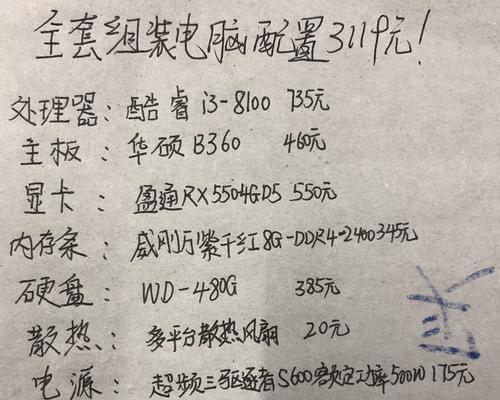 全套组装电脑配置3119元!
处理器:酷睿i3-8100 735元
主板:华硕B360 460元
显卡:盈通RX5504GD5 550元
内存条:威刚万紫千红8G-DDR4-2400 345元
硬盘:WD-480G 385元
散热:多平台散热风扇 20元
电源:超频三驱逐者S600额定功率500W 175元